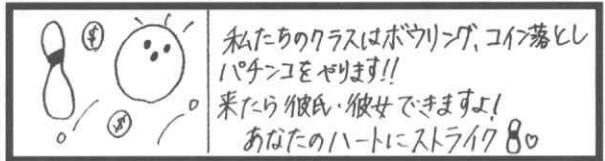 私たちのクラスはボウリング、コイン落とし
パチンコをやります!!
来たら彼氏・彼女できますよ!
あなたのハートにストライク